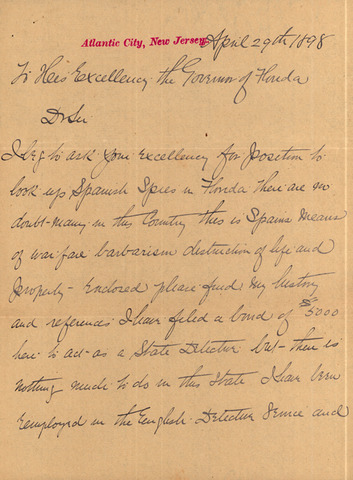 Atlantic City, New Jersey, April 29th 1898
To His Excellency the Governor of Florida
Dr Sir
I beg to ask your Excellency for position to
look up Spanish Spies in Florida there are no
doubt many in this Country this is Spains Means
of warfare barbarism distruction of life and
Property - Enclosed please find my history
and references I have filed a bond of $5000
here to act as a State Detective but there is
nothing much to do in this State I have been
employed in the English Detective Service and